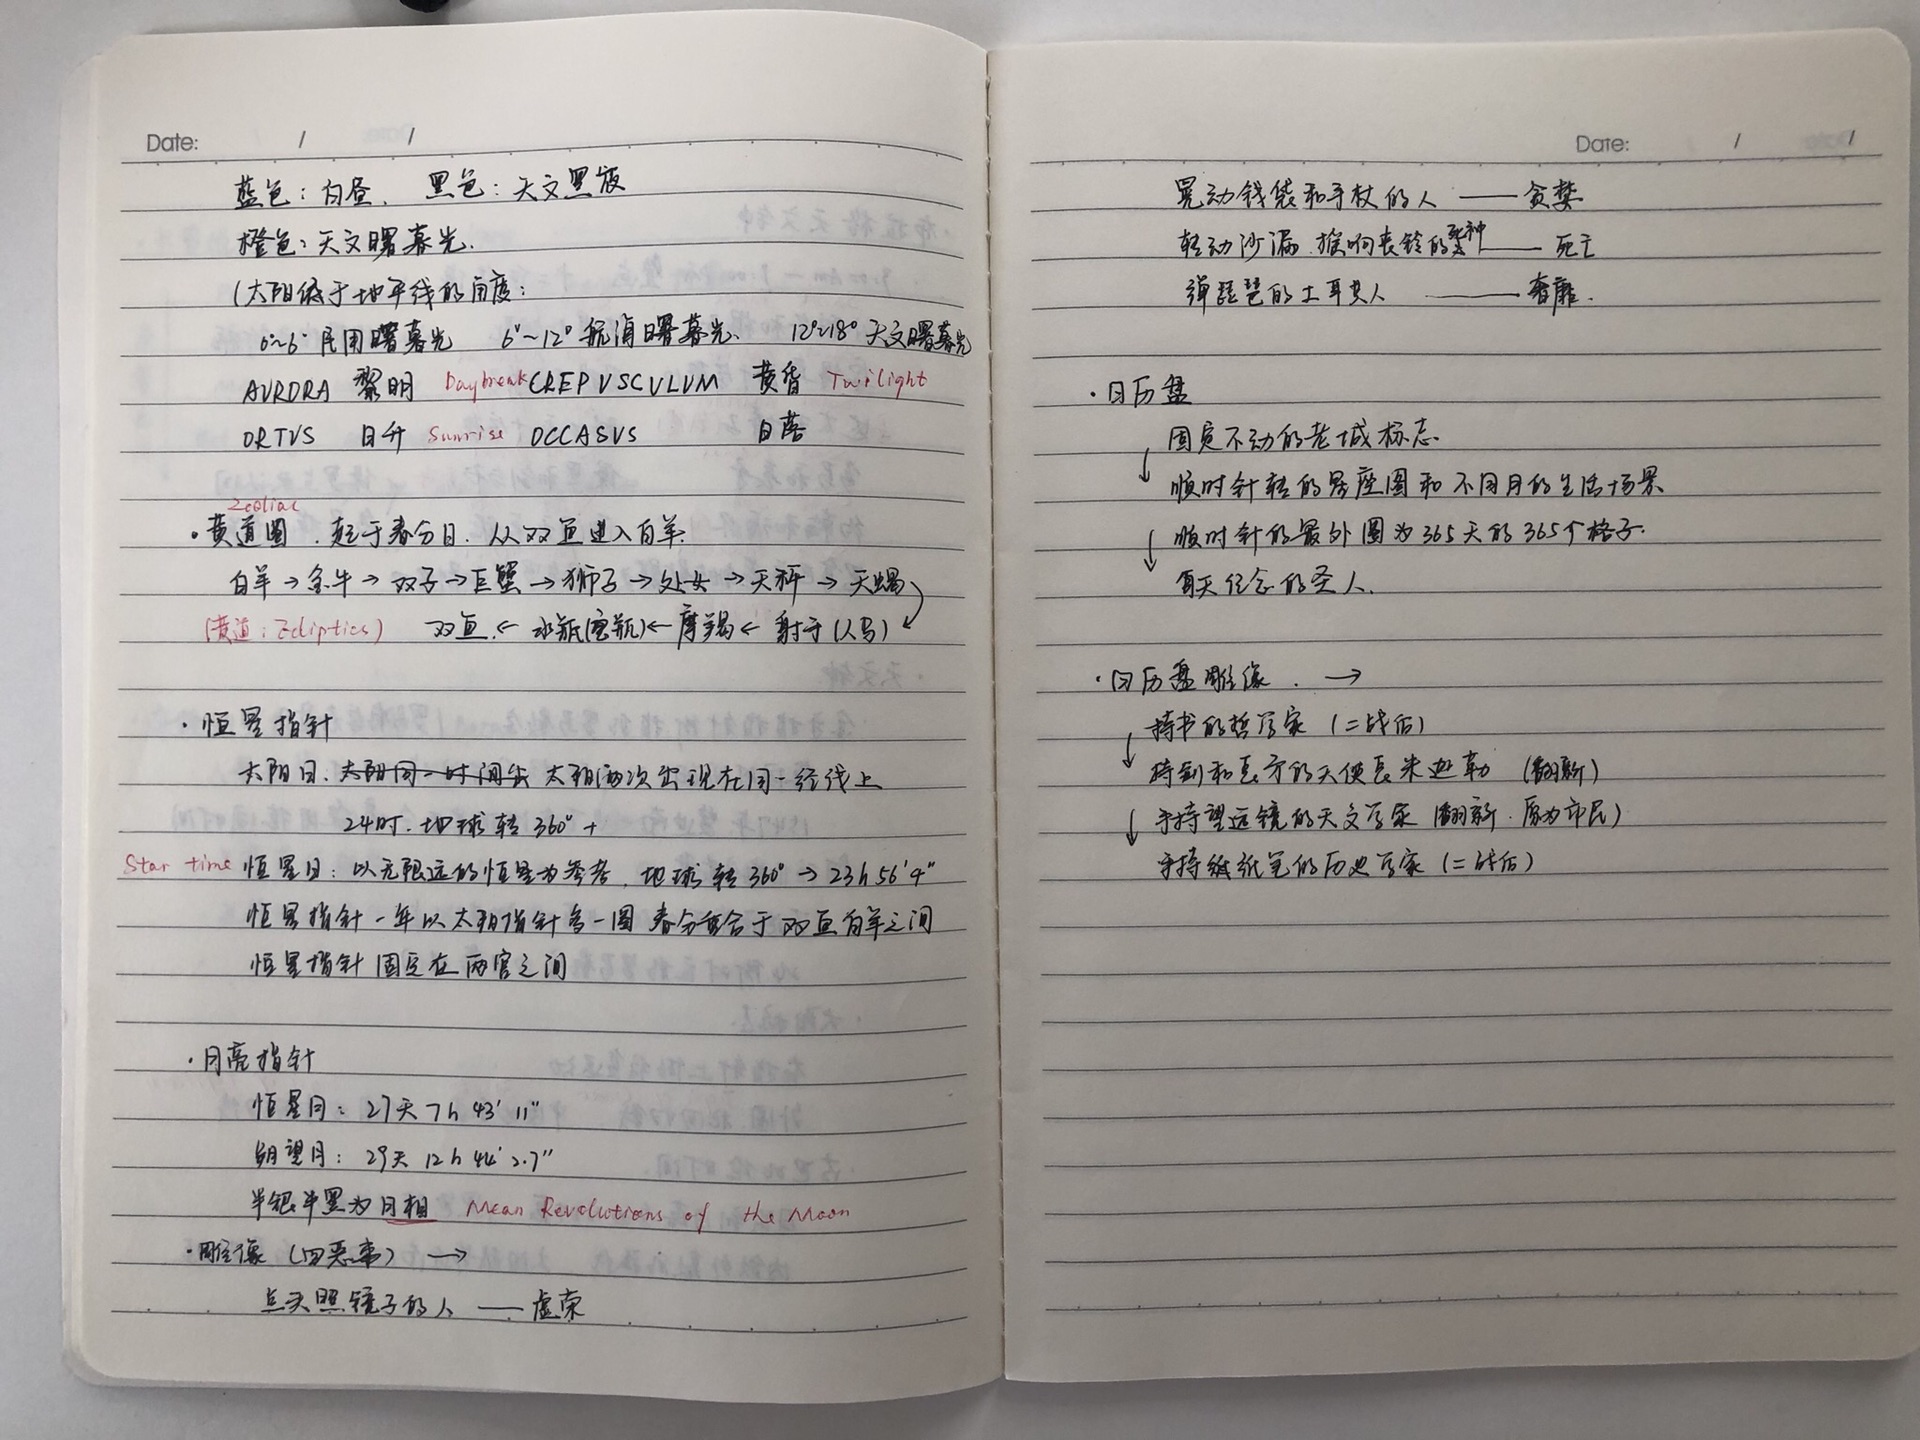 Date: / /
蓝色：白昼、 黑色：天文黑夜
橙色：天文曙暮光.
(太阳低于地平线的角度：
0°~6°民用曙暮光 6°~12°航海曙暮光、 12°~18°天文曙暮光
AVRORA 黎明 Daybreak CREPVSCVLVM 黄昏 Twilight
ORTVS 日升 Sunrise OCCASVS 日落
Zodiac
·黄道圈．起于春分日．从双鱼进入白羊.
白羊→金牛→双子→巨蟹→狮子→处女→天秤→天蝎
(黄道：Ecliptics) 双鱼←水瓶(宝瓶)←摩羯←射手(人马)
·恒星指针
太阳日. 太阳同一时间出 太阳两次出现在同一经线上
24时. 地球转360°+
Star time 恒星日：以无限远的恒星为参考．地球转360°→23h56'4"
恒星指针一年以太阳指针多一圈 春分重合于双鱼白羊之间
恒星指针固定在两宫之间
·月亮指针
恒星月：27天7h 43' 11"
朔望月：29天 12h 44' 2.7"
半银半黑为月相 Mean Revolutions of the Moon
·雕像(四恶事) →
点头照镜子的人 —— 虚荣
Date: / /
晃动钱袋和手杖的人 —— 贪婪
转动沙漏．摇响丧铃的死神 —— 死亡
弹琵琶的土耳其人 —— 奢靡.
·日历盘
固定不动的老城标志.
↓ 顺时针转的星座图和不同月的生活场景
↓ 顺时针的最外圈为365天的365个格子.
↓ 每天纪念的圣人.
·日历盘雕像．→
持书的哲学家(二战后)
↓ 持剑和长矛的天使长米迦勒 (翻新)
↓ 手持望远镜的天文学家(翻新．原为市民)
手持纸笔的历史学家(二战后)